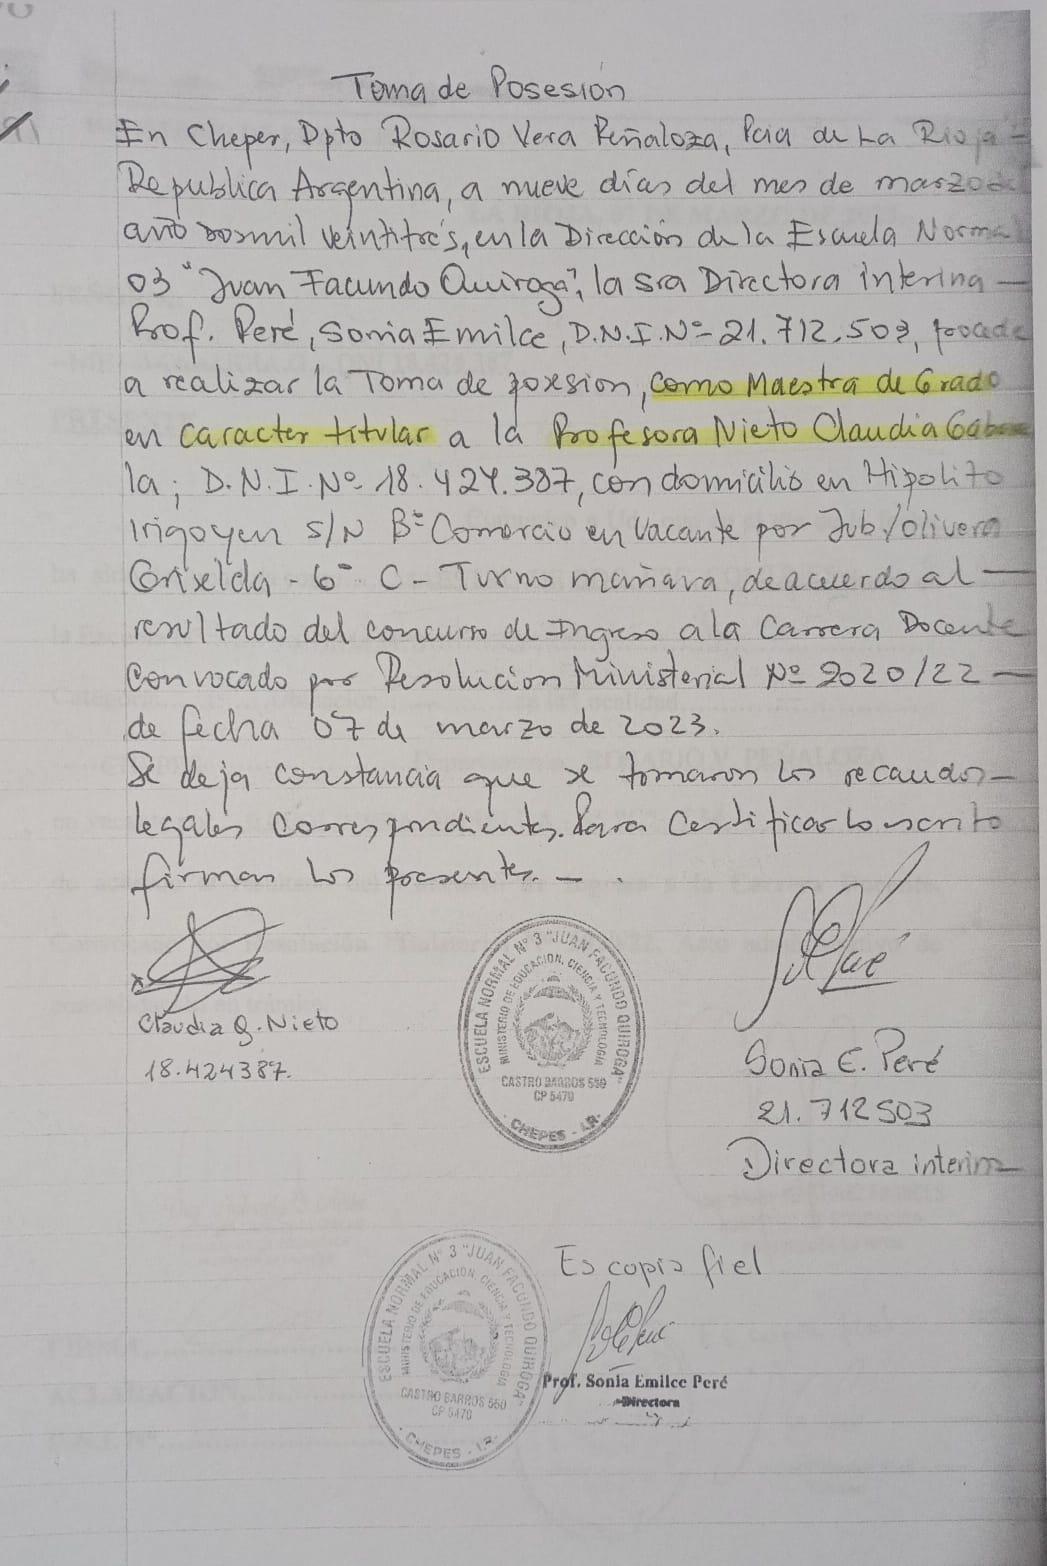 Toma de Posesión
En Chepes, Dpto Rosario Vera Peñaloza, Pcia de La Rioja -
Republica Argentina, a nueve días del mes de marzo de
año dosmil veintitrés, en la Dirección de la Escuela Normal
03 "Juan Facundo Quiroga", la sra Directora interina —
Prof. Peré, Sonia Emilce, D.N.I.Nº 21.712.503, procede
a realizar la Toma de posesion, como Maestra de Grado
en caracter titular a la Profesora Nieto Claudia Gabrie
la; D.N.I.Nº 18.424.387, con domicilio en Hipolito
Irigoyen s/N Bº Comercio en Vacante por Jub/olivera
Griselda - 6º C - Turno mañana, de acuerdo al —
resultado del concurso de Ingreso a la Carrera Docente
Convocado por Resolucion Ministerial Nº 2020/22 —
de fecha 07 de marzo de 2023.
Se deja constancia que se tomaron los recaudos —
legales correspondientes. Para Certificar lo escrito
firman los presentes. — .
Claudia G. Nieto
18.424387.
ESCUELA NORMAL Nº 3 "JUAN FACUNDO QUIROGA"
MINISTERIO DE EDUCACION, CIENCIA Y TECNOLOGIA
CASTRO BARROS 550
CP 5470
CHEPES - L.R.
Sonia E. Peré
21.712503
Directora interina
Es copia fiel
ESCUELA NORMAL Nº 3 "JUAN FACUNDO QUIROGA"
MINISTERIO DE EDUCACION, CIENCIA Y TECNOLOGIA
CASTRO BARROS 550
CP 5470
CHEPES - L.R.
Prof. Sonia Emilce Peré
Directora